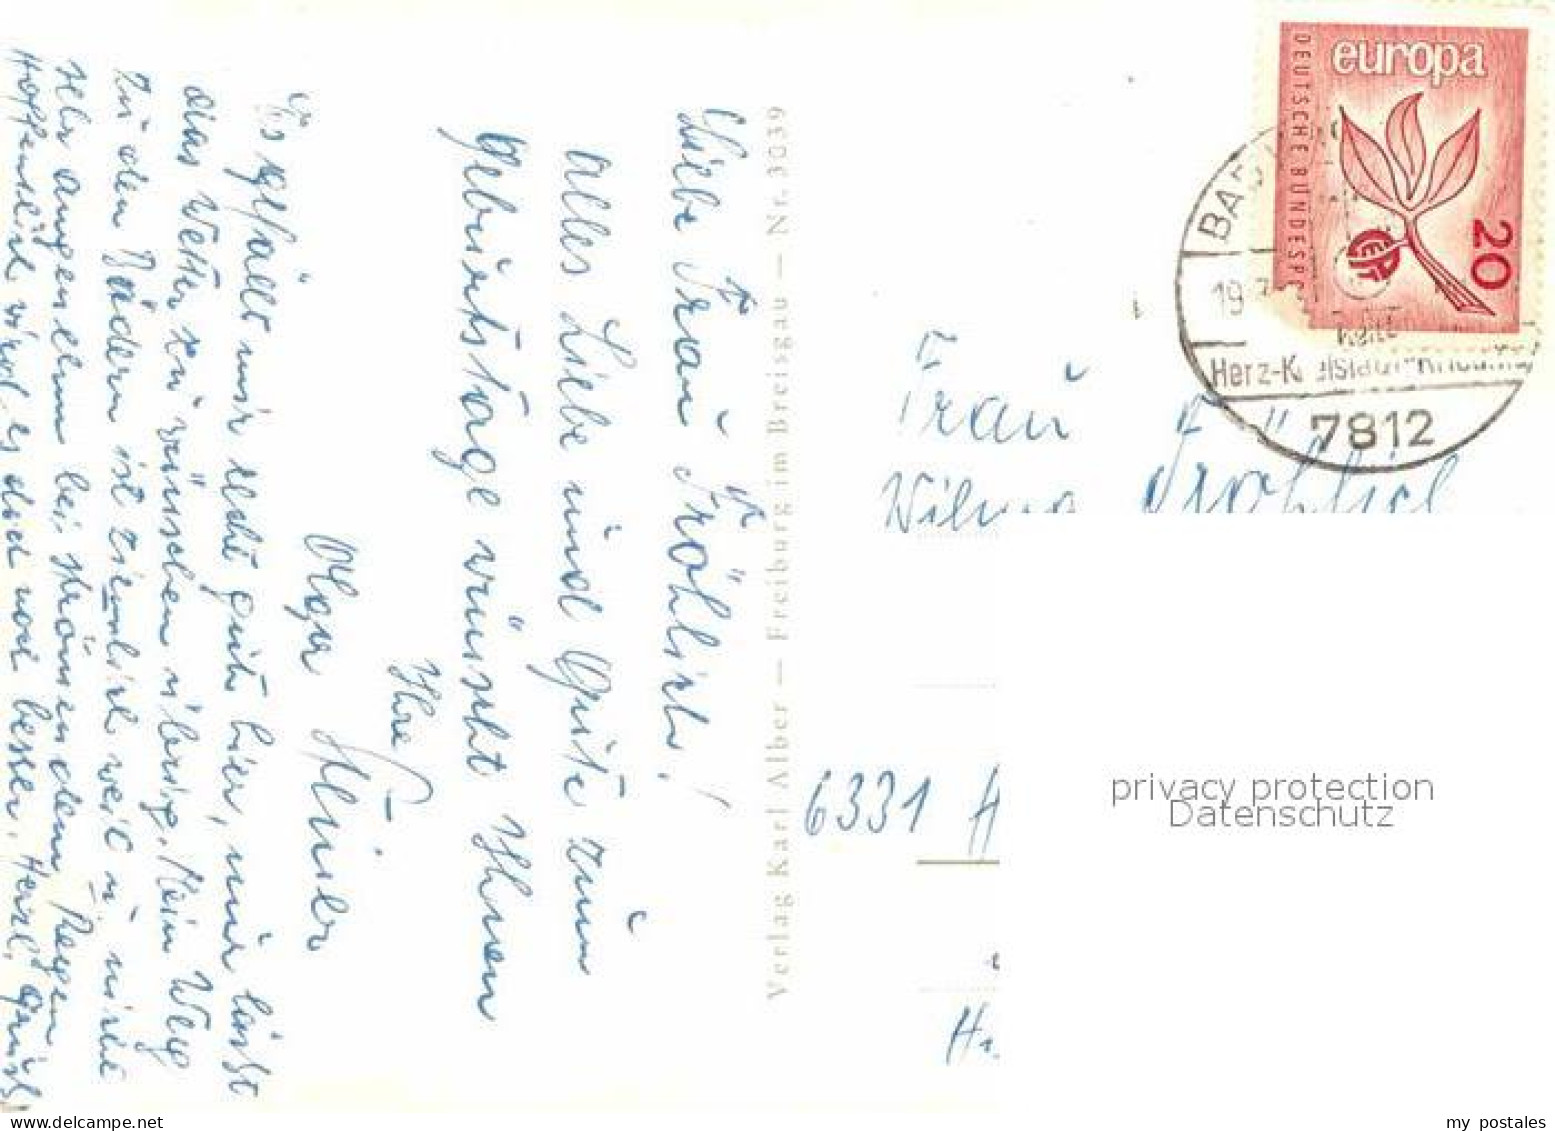 Liebe Frau Fröhlich!
Alles Liebe und Gute zum
Geburtstage wünscht Ihnen
Ihre
Olga
Es gefällt mir recht gut hier, nur lässt
das Wetter zu wünschen übrig. Mein Weg
zu den Bädern ist ziemlich weit u. nicht
sehr angenehm bei strömendem Regen.
Hoffentlich wird es doch noch besser. Herzl. Grüße
Verlag Karl Alber — Freiburg im Breisgau — Nr. 3039
europa
DEUTSCHE BUNDESP
20
CEPT
BAD
19
Herz-K
7812
Frau
Wilma Fröhlich
6331 H
privacy protection
Datenschutz
my postales